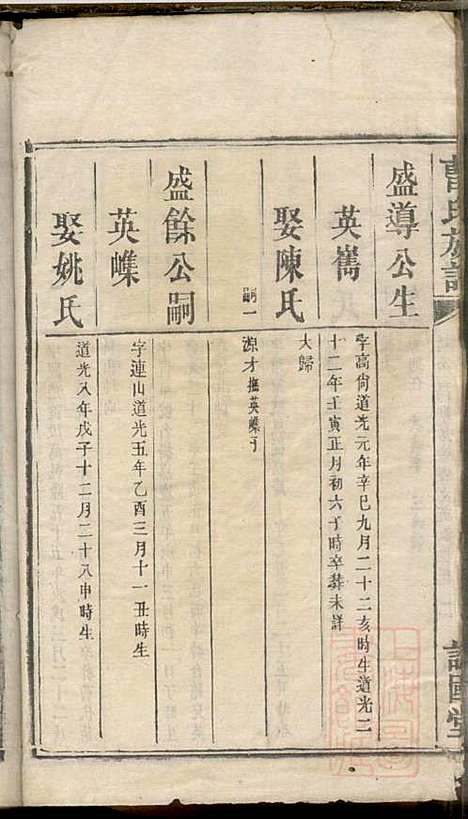 曹氏族譜
盛導公生
英嶲
字高尙道光元年辛巳九月二十二亥時生道光二
十二年壬寅正月初六丁時卒葬未詳
娶陳氏
大歸
嗣一
源才撫英㠎子
盛餘公嗣
英㠎
字連山道光五年乙酉三月十一丑時生
娶姚氏
道光八年戊子十二月二十八申時生
譜國堂